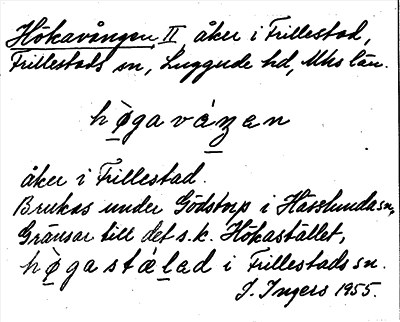 Hökavången II åker i Frillestad,
Frillestads sn, Luggude hd, Mhs län.
hø̨gavaŋen
åker i Frillestad
Brukas under Gödstorp i Hässlunda sn,
Gränsar till det s.k. Hökastället,
høgastælad i Frillestads sn.
J. Ingers 1955.